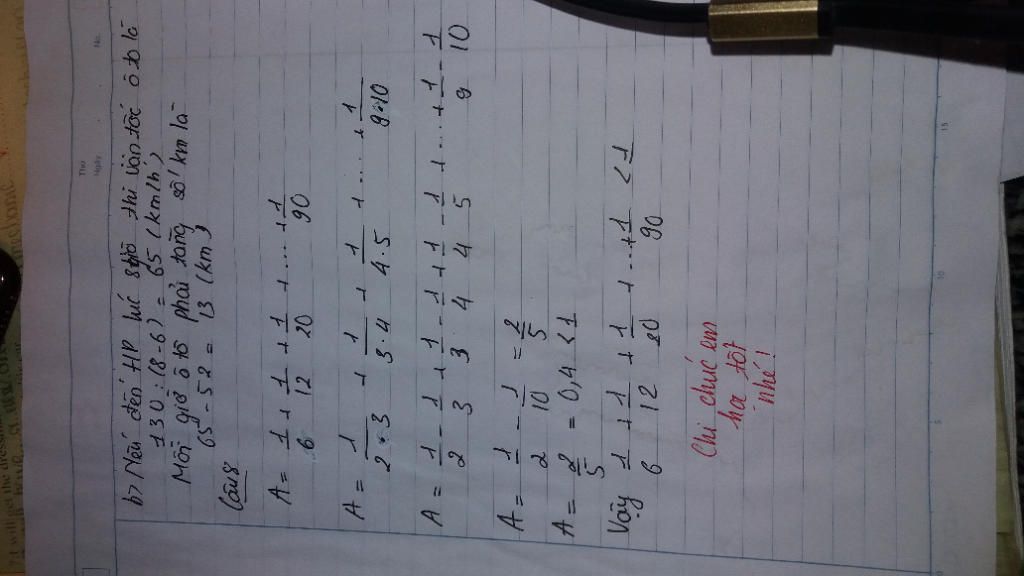 Thứ
Ngày
No.
b> Nếu đến HP lúc 8 giờ thì vận tốc ô tô là
130 : (8 - 6) = 65 (km/h)
Mỗi giờ ô tô phải tăng số km là
65 - 52 = 13 (km)
Câu 8
A = 1/6 + 1/12 + 1/20 + .... + 1/90
A = 1/2.3 + 1/3.4 + 1/4.5 + .... + 1/9.10
A = 1/2 - 1/3 + 1/3 - 1/4 + 1/4 - 1/5 + ... + 1/9 - 1/10
A = 1/2 - 1/10 = 2/5
A = 2/5 = 0,4 < 1
Vậy 1/6 + 1/12 + 1/20 + ... + 1/90 < 1
Chị chúc em
học tốt
nhé !
5
10
15